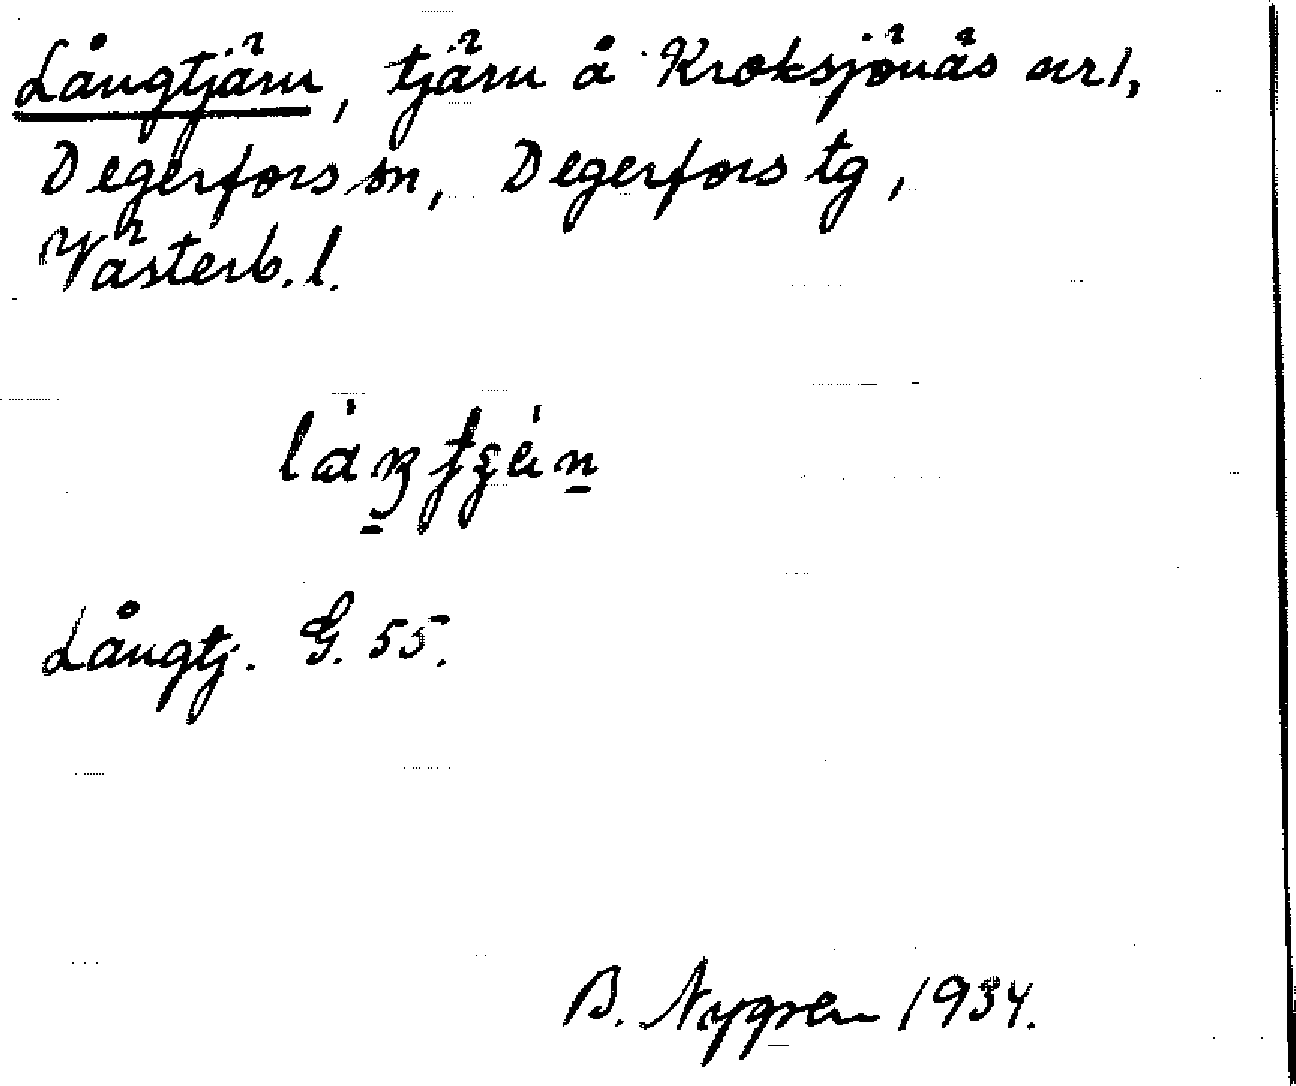 Långtjärn, tjärn å Kroksjönäs nr 1,
Degerfors sn, Degerfors tg,
Västerb. l.
Långtj. G. 55.
B. Nygren 1934.